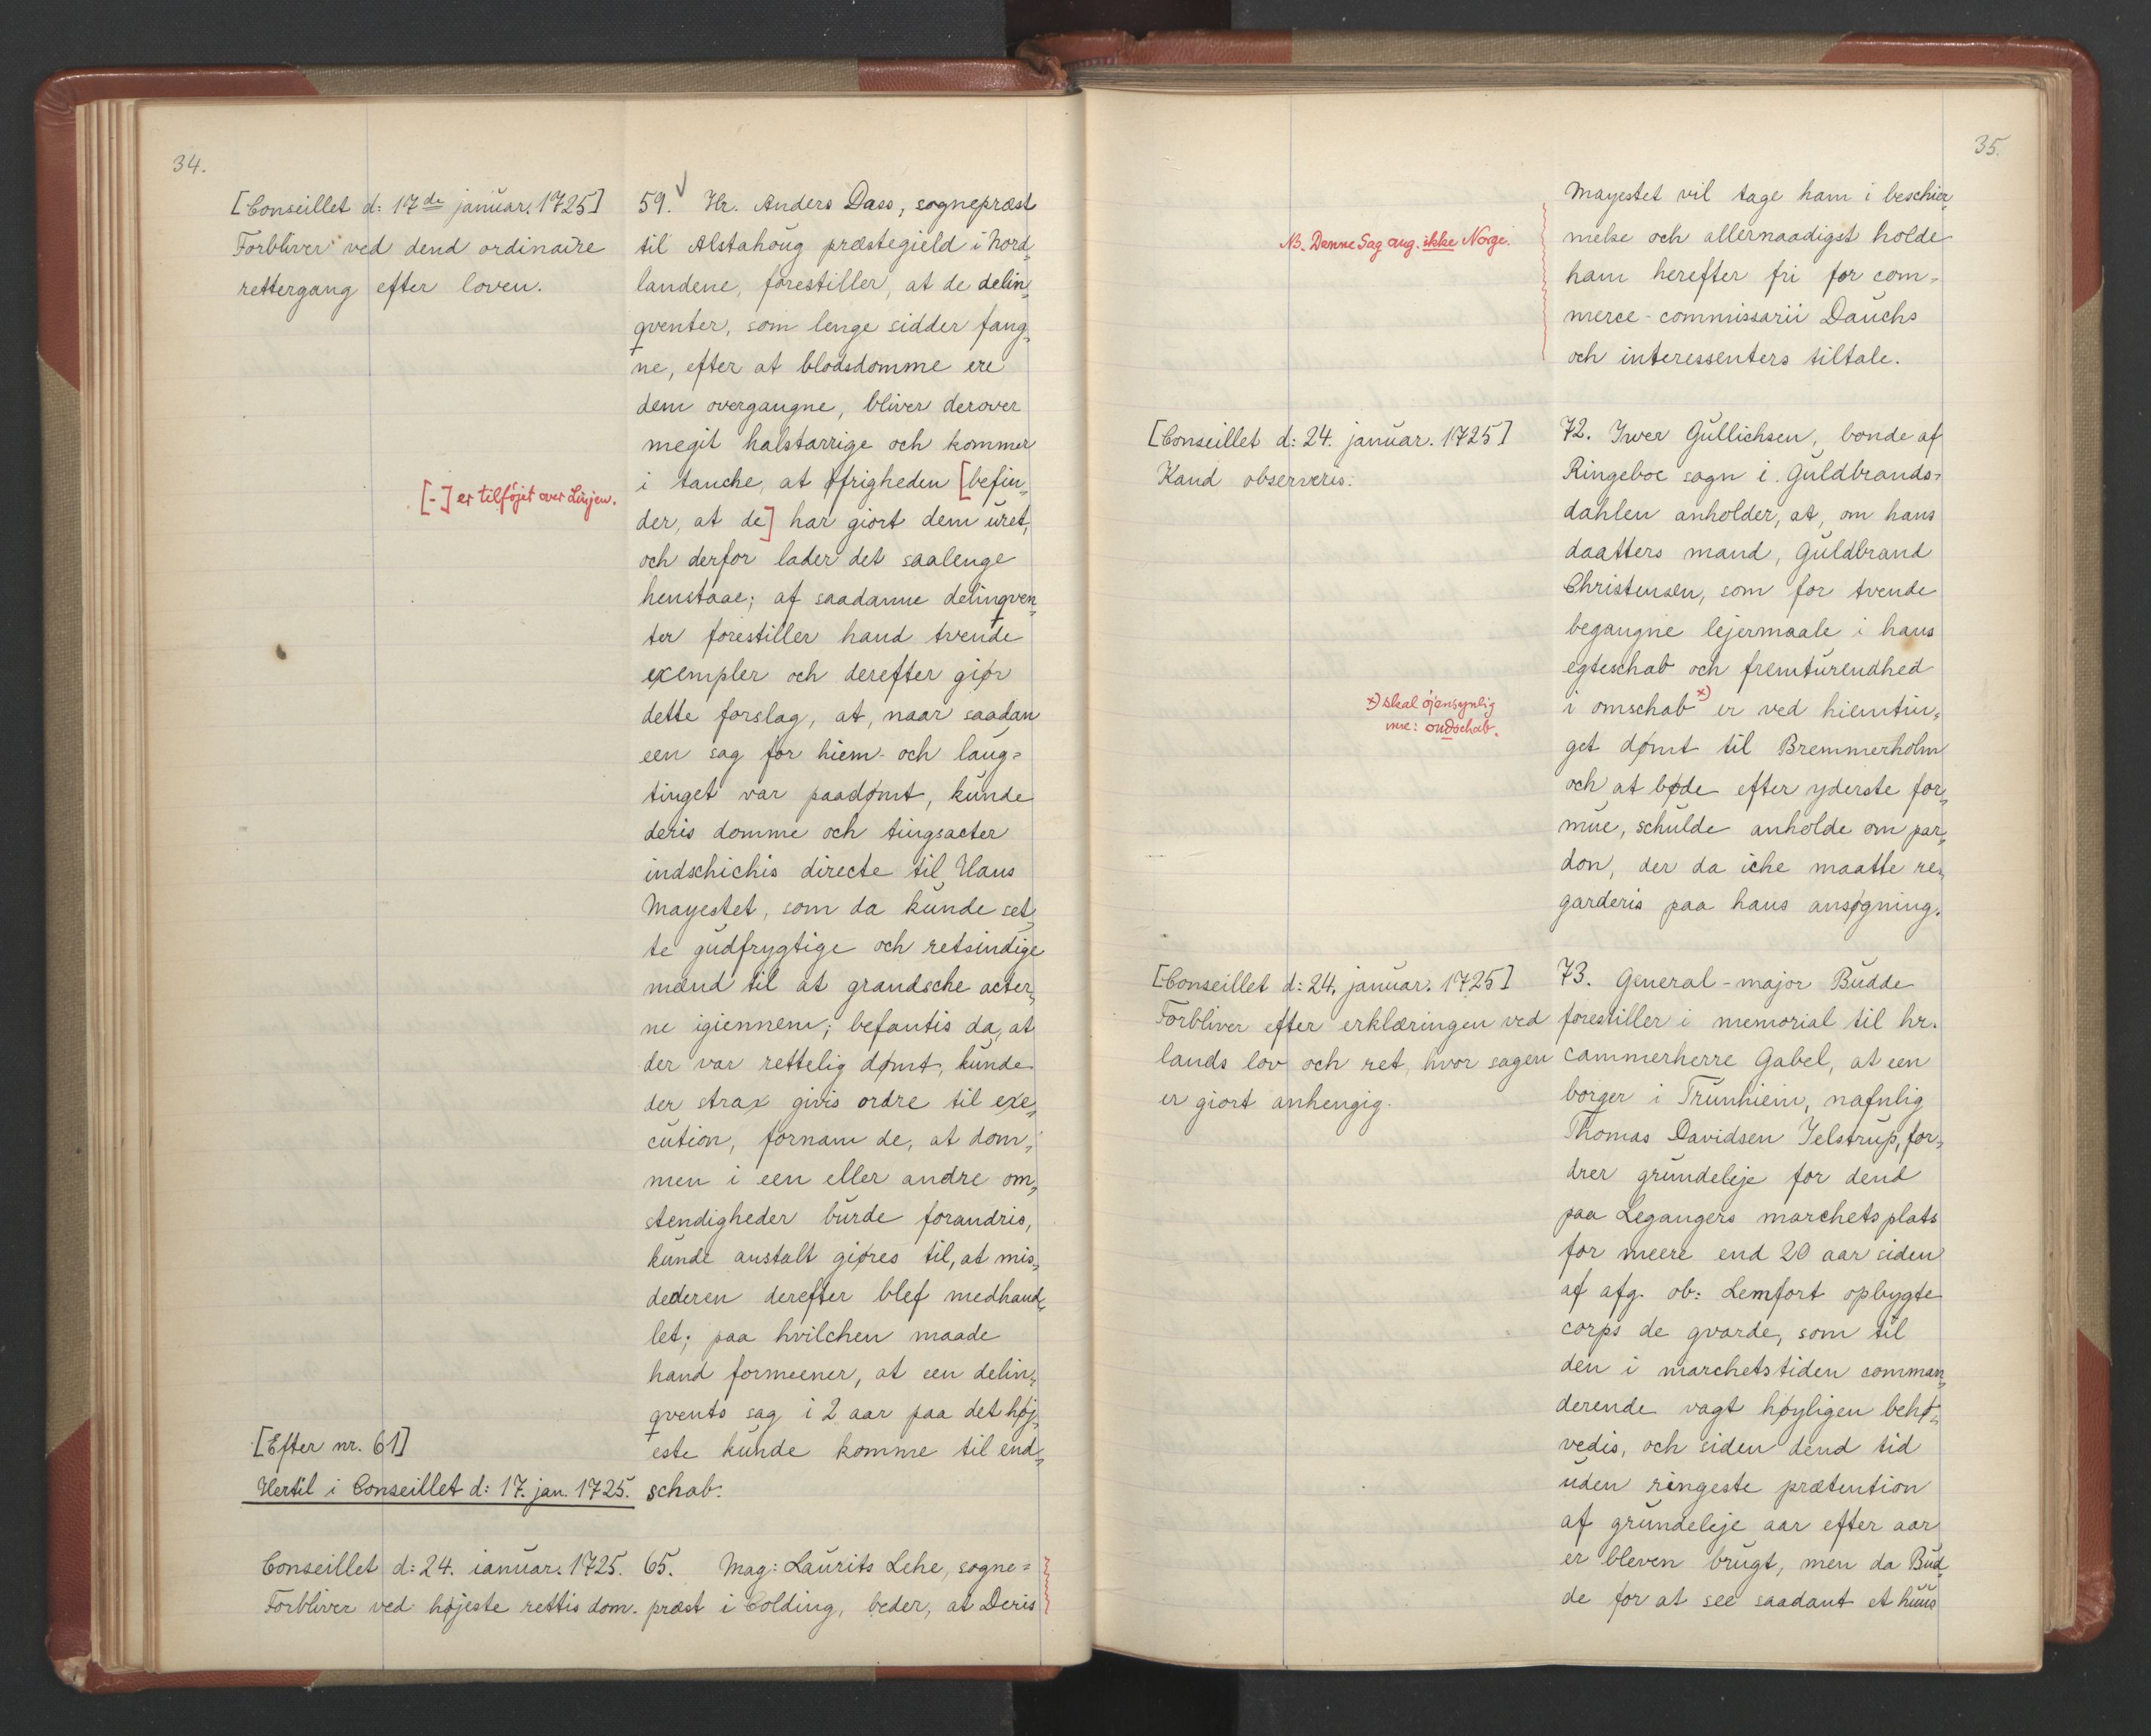 34.
[Conseillet d: 17de januar. 1725]
Forbliver ved dend ordinaire
rettergang efter loven.
[-] er tilføjet over Linjen.
[Efter nr. 61]
Hertil i Conseillet d: 17. jan. 1725.
Conseillet d: 24. ianuar. 1725.
Forbliver ved højeste rettis dom.
59. Hr. Anders Dass, sognepræst
til Alstahoug præstegield i Nord„
landene, forestiller, at de delin„
qventer, som lenge sidder fang„
ne, efter at blodsdomme ere
dem overgangne, bliver derover
megit halstarrige och kommer
i tanche, at øfrigheden [befin„
der, at de] har giort dem uret,
och derfor lader det saalenge
henstaae; af saadanne delinqven„
ter forestiller hand tvende
exempler och derefter giør
dette forslag, at, naar saadan
een sag for hiem- och laug=
tinget var paadømt, kunde
deris domme och tingsacter
indschichis directe til Hans
Mayestet, som da kunde set„
te gudfrygtige och retsindige
mænd til at grandsche acter„
ne igiennem; befantis da, at
der var rettelig dømt, kunde
der strax givis ordre til exe„
cution, fornam de, at dom„
men i een eller andre om„
stendigheder burde forandris,
kunde anstalt giøres til, at mis„
dederen derefter blef medhand„
let; paa hvilchen maade
hand formeener, at een delin„
qvents sag i 2 aar paa det høj„
este kunde komme til end„
schab.
65. Mag: Laurits Lehe, sogne=
præst i Colding, beder, at Deris
35.
Mayestet vil tage ham i beschier„
melse och allernaadigst holde
ham herefter fri for com=
merce-commissarii Dauchs
och interessenters tiltale.
NB. Denne Sag ang. ikke Norge.
[Conseillet d: 24. januar. 1725]
Kand observeris.
72. Iwer Gullichsen, bonde af
Ringeboe sogn i Guldbrands=
dahlen anholder, at, om hans
daatters mand, Guldbrand
Christensen, som for tvende
begangne lejermaale i hans
egteschab och fremturendhed
i omschab x) er ved hiemtin„
get dømt til Bremmerholm
och at bøde efter yderste for„
mue, schulde anholde om par„
don, der da iche maatte re„
garderis paa hans ansøgning.
x) skal øjensynlig
være: ondschab.
[Conseillet d: 24. januar. 1725]
Forbliver efter erklæringen ved
lands lov och ret, hvor sagen
er giort anhengig.
73. General-major Budde
forestiller i memorial til hr.
cammerherre Gabel, at een
borger i Trunhiem, nafnlig
Thomas Davidsen Jelstrup, for„
drer grundeleje for dend
paa Legangers marchetsplats
for meere end 20 aar siden
af afg. ob: Lemfort opbygte
corps de gvarde, som til
den i marchetstiden comman„
derende vagt høyligen behø„
vedis, och siden dend tid
uden ringeste prætention
af grundeleje aar efter aar
er bleven brugt, men da Bud„
de for at see saadant et huus